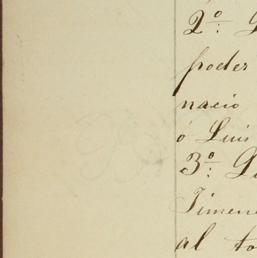 2º
poder
nacio
ó Luis
3º
Jimen
al to